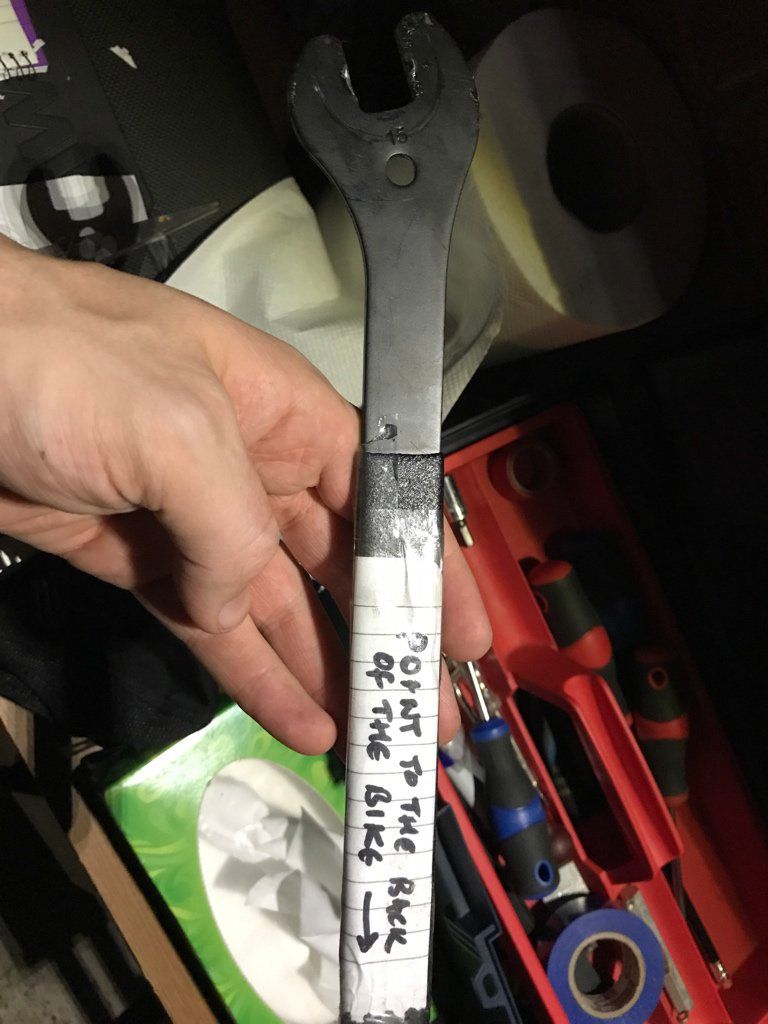 15
POINT TO THE BACK
OF THE BIKE →